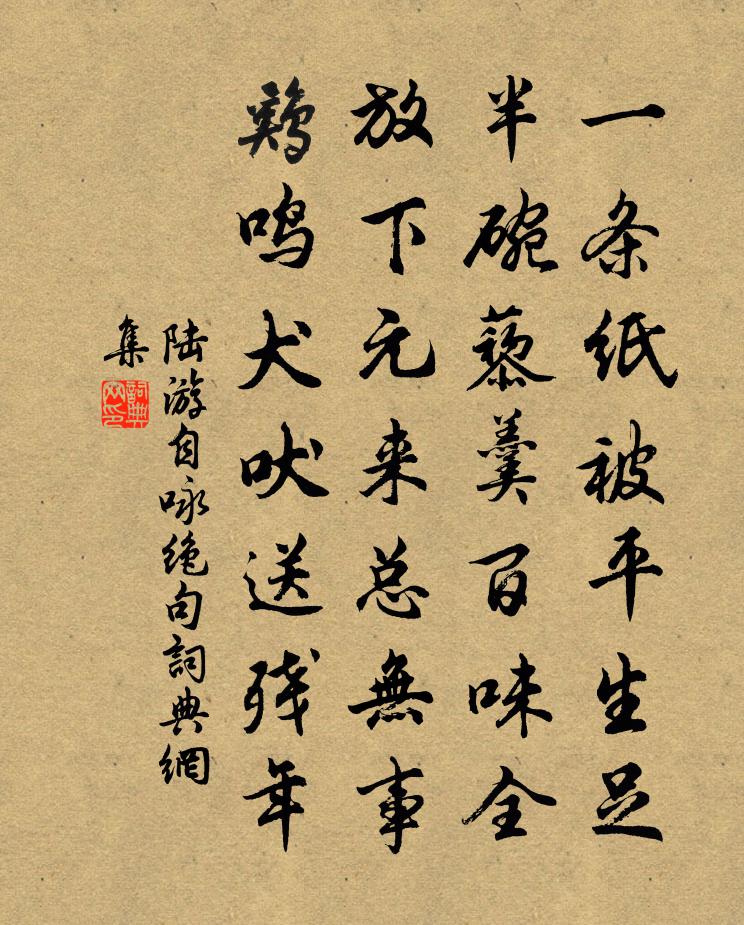 一条纸被平生足
半碗藜羹百味全
放下元来总無事
鷄鸣犬吠送残年
陆游自咏绝句詞典網
集
詞典网印